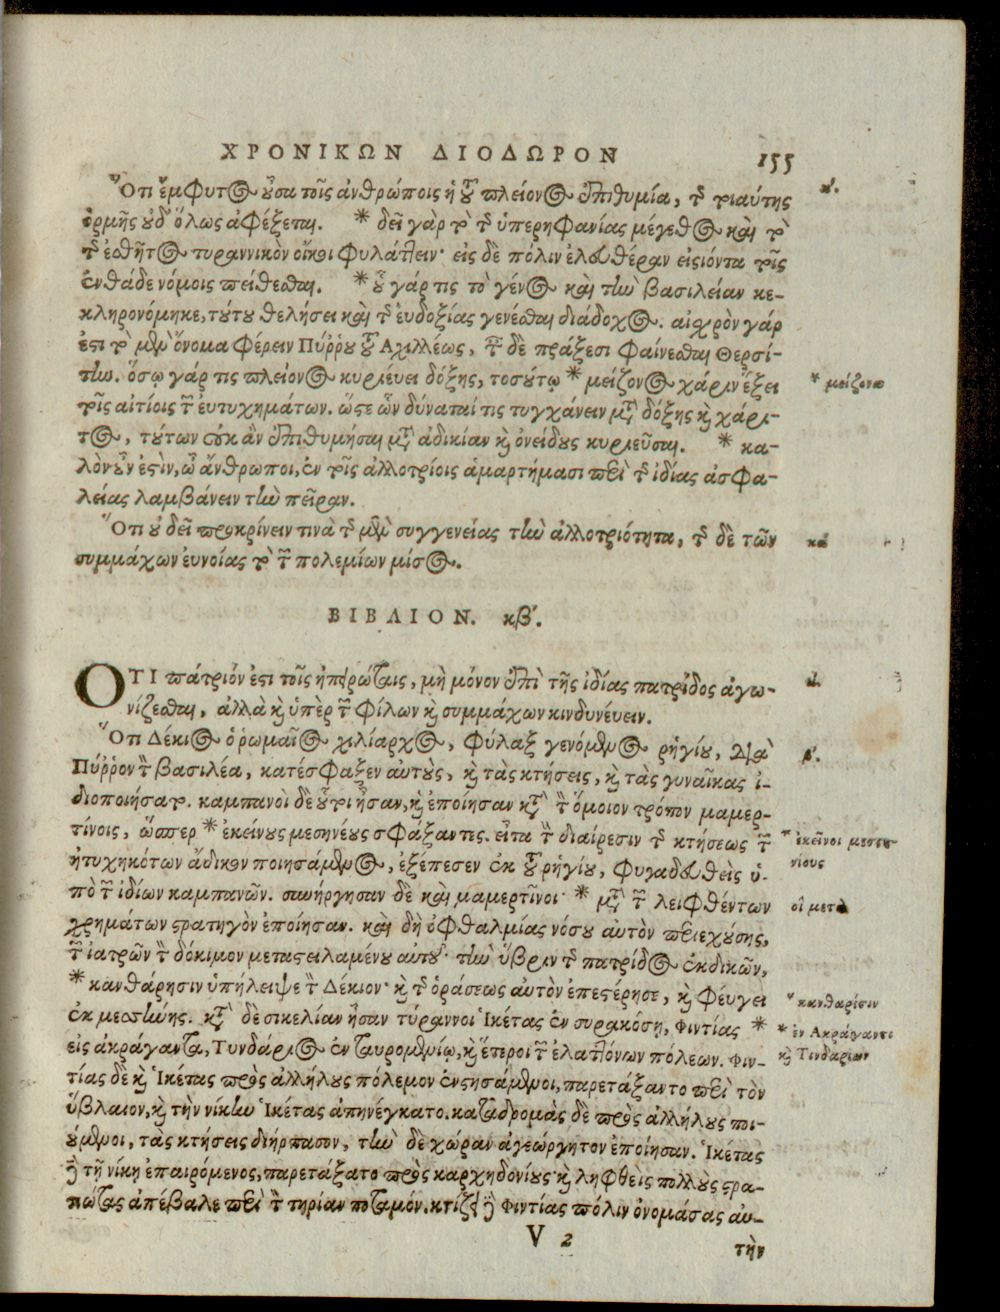 ΧΡΟΝΙΚΩΝ ΔΙΟΔΩΡΟΝ 155
Ὅτι ἔμφυτος οὖσα τοῖς ἀνθρώποις ἡ τοῦ πλείονος ἐπιθυμία, τῆς τοιαύτης α΄.
ὁρμῆς οὐδ᾽ ὅλως ἀφέξεται. * δεῖ γὰρ τὸ τῆς ὑπερηφανίας μέγεθος καὶ τὸ
τῆς ἐσθῆτος τυραννικὸν οἴκοι φυλάττειν· εἰς δὲ πόλιν ἐλευθέραν εἰσιόντα τοῖς
ἐνθάδε νόμοις πείθεσθαι. * οὗ γάρ τις τὸ γένος καὶ τὴν βασιλείαν κε-
κληρονόμηκε, τούτου θελήσει καὶ τῆς εὐδοξίας γενέσθαι διάδοχος. αἰσχρὸν γάρ
ἐστι τὸ μὲν ὄνομα φέρειν Πύρρου τοῦ Αχιλλέως, ταῖς δὲ πράξεσι φαίνεσθαι Θερσί-
την. ὅσῳ γάρ τις πλείονος κυριεύει δόξης, τοσούτῳ * μείζονος χάριν ἕξει * μείζονα
τοῖς αἰτίοις τῶν εὐτυχημάτων. ὥστε ὧν δύναταί τις τυγχάνειν μετὰ δόξης καὶ χάρι-
τος, τούτων οὐκ ἂν ἐπιθυμήσαι μετὰ ἀδικίαν καὶ ὀνείδους κυριεῦσαι. * κα-
λὸν οὖν ἐστὶν, ὦ ἄνθρωποι, ἐν τοῖς ἀλλοτρίοις ἁμαρτήμασι περὶ τῆς ἰδίας ἀσφα-
λείας λαμβάνειν τὴν πεῖραν.
Ὅτι οὐ δεῖ προκρίνειν τινὰ τῆς μὲν συγγενείας τὴν ἀλλοτριότητα, τῆς δὲ τῶν
συμμάχων εὐνοίας τὸ τῶν πολεμίων μῖσος.
ΒΙΒΛΙΟΝ. κβ΄.
ΟΤΙ πάτριόν ἐστι τοῖς ἠπειρώταις, μὴ μόνον ἐπὶ τῆς ἰδίας πατρίδος ἀγω- α΄.
νίζεσθαι, ἀλλὰ καὶ ὑπὲρ τῶν φίλων καὶ συμμάχων κινδυνεύειν.
Ὅτι Δέκιος ὁ ῥωμαῖος χιλίαρχος, φύλαξ γενόμενος ῥηγίου, διὰ β΄.
Πύῤῥον τὸν βασιλέα, κατέσφαξεν αὐτοὺς, καὶ τὰς κτήσεις, καὶ τὰς γυναῖκας ἰ-
διοποιήσατο. καμπανοὶ δὲ οὗτοι ἦσαν, καὶ ἐποίησαν κατὰ τὸν ὅμοιον τρόπον μαμερ-
τίνοις, ὥσπερ * ἐκείνους μεσηνέους σφάξαντες. εἶτα τὸν διαίρεσιν τῆς κτήσεως τῶν * ἐκεῖνοι μεσση-
ἠτυχηκότων ἄδικον ποιησάμενος, ἐξέπεσεν ἐκ τοῦ ῥηγίου, φυγαδευθεὶς ὑ- νίους
πὸ τῶν ἰδίων καμπανῶν. συνήργησαν δὲ καὶ μαμερτῖνοι· * μετὰ τῶν λειφθέντων οἳ μετὰ
χρημάτων στρατηγὸν ἐποίησαν. καὶ δὴ ὀφθαλμίας νόσου αὐτὸν περιεχούσης,
τῶν ἰατρῶν τὸν δόκιμον μεταστειλαμένου αὐτοῦ· τὴν ὕβριν τῆς πατρίδος ἐκδικῶν,
* κανθάρησιν ὑπήλειψε τὸν Δέκιον· καὶ τῆς ὁράσεως αὐτὸν ἐπεστέρησε, καὶ φεύγει * κανθαρίσιν
ἐκ μεσσήνης. κατὰ δὲ σικελίαν ἦσαν τύραννοι Ἱκέτας ἐν συρακόσῃ, Φιντίας * * ἐν Ακράγαντι
εἰς ἀκράγαντα, Τυνδάριος ἐν ταυρομενίῳ, καὶ ἕτεροι τῶν ἐλαττόνων πόλεων. Φιν- καὶ Τινδαρίων
τίας δὲ καὶ Ἱκέτας πρὸς ἀλλήλους πόλεμον ἐνστησάμενοι, παρετάξαντο περὶ τὸν
ὕβλαιον, καὶ τὴν νίκην Ἱκέτας ἀπηνέγκατο. καταδρομὰς δὲ πρὸς ἀλλήλους ποι-
ούμενοι, τὰς κτήσεις διήρπασον, τὴν δὲ χώραν ἀγεώργητον ἐποίησαν. Ἱκέτας
δὲ τῇ νίκῃ ἐπαιρόμενος, παρετάξατο πρὸς καρχηδονίους· καὶ ληφθεὶς πολλοὺς στρα-
τιώτας ἀπέβαλε περὶ τὸν τηρίαν ποταμόν. κτίζει δὲ Φιντίας πόλιν ὀνομάσας αὐ-
V 2
τὴν